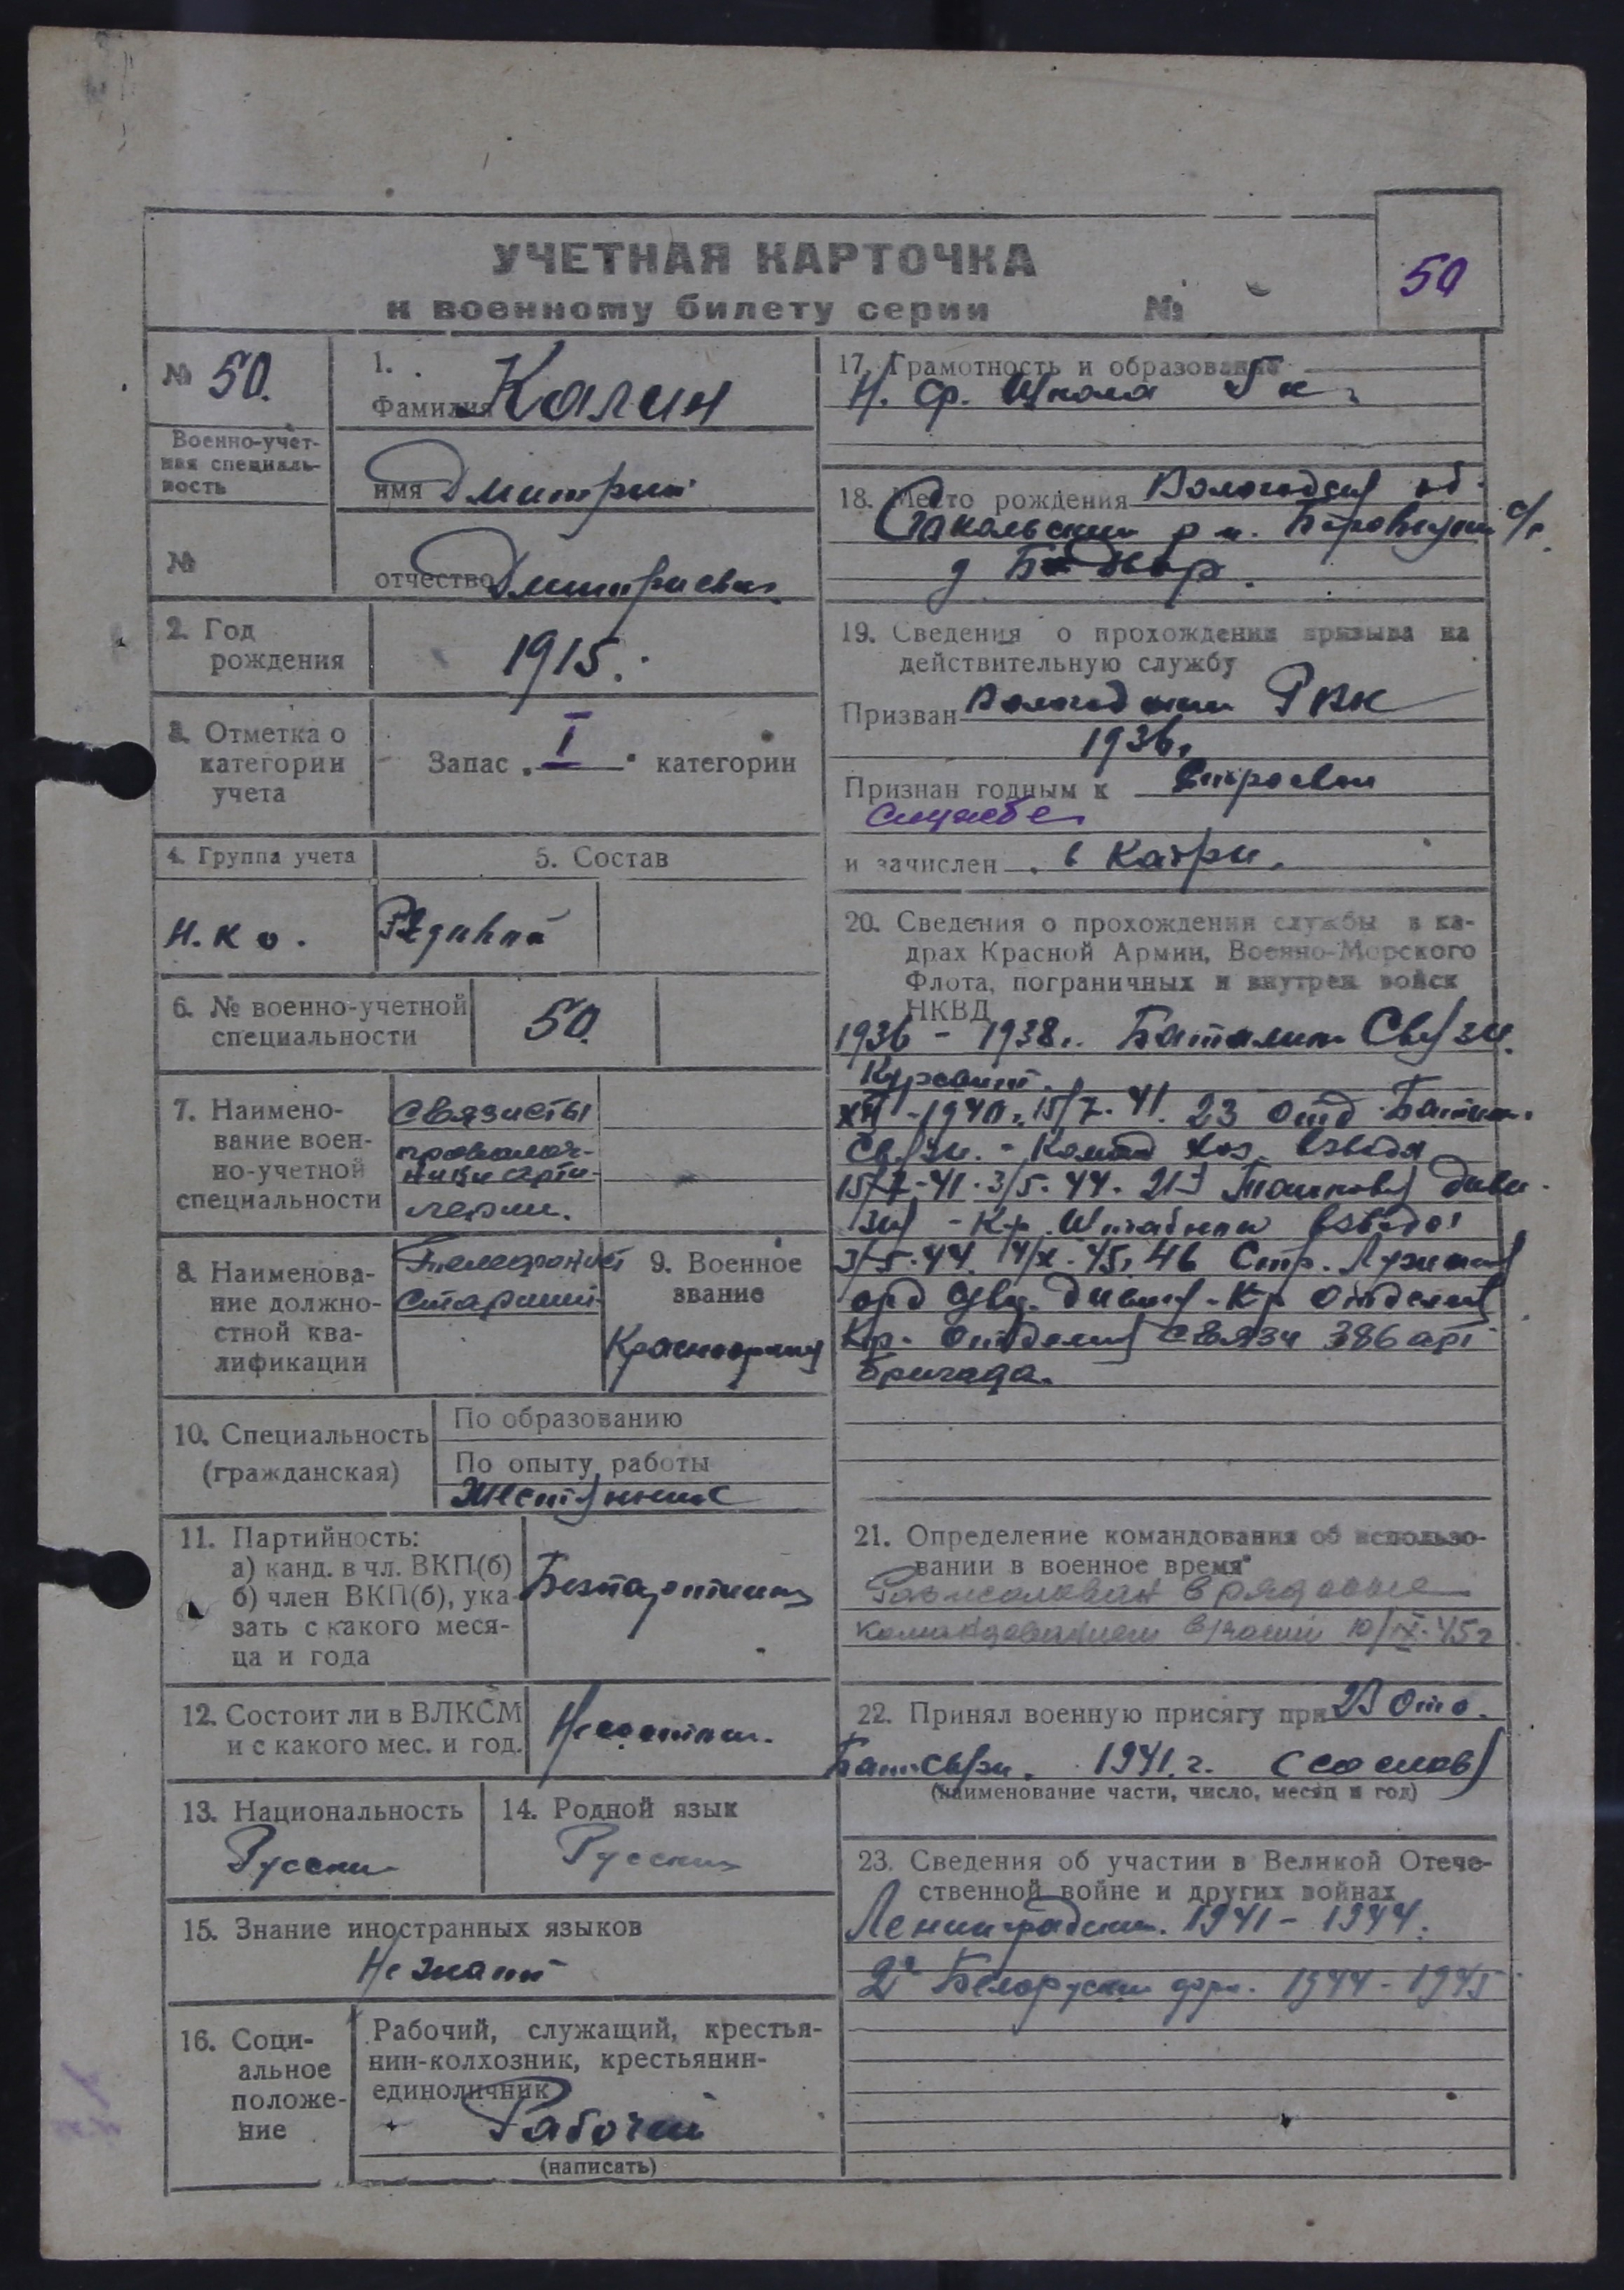 УЧЕТНАЯ КАРТОЧКА
к военному билету серии №
50
№ 50.
Военно-учет-
ная специаль-
ность
№
1.
Фамилия Калин
имя Дмитрий
отчество Дмитриевич
2. Год
рождения
1915.
3. Отметка о
категории
учета
Запас „ I “ категории
4. Группа учета
Н.К О.
5. Состав
Рядивой
6. № военно-учетной
специальности
50.
7. Наимено-
вание воен-
но-учетной
специальности
Связисты
проволоч-
ники арти-
лерии.
8. Наименова-
ние должно-
стной ква-
лификации
Телефонист
Старший
9. Военное
звание
Красноармеец
10. Специальность
(гражданская)
По образованию
По опыту работы
Жестянник
11. Партийность:
а) канд. в чл. ВКП(б)
б) член ВКП(б), ука-
зать с какого меся-
ца и года
Безпартийный
12. Состоит ли в ВЛКСМ
и с какого мес. и год.
Несостоит.
13. Национальность
Русский
14. Родной язык
Русский
15. Знание иностранных языков
Не знает
16. Соци-
альное
положе-
ние
Рабочий, служащий, крестья-
нин-колхозник, крестьянин-
единоличник
Рабочий
(написать)
17. Грамотность и образование
Н. Ср. Школа 5 к
18. Место рождения Вологодская об.
Сокольский р н. с/с
д
19. Сведения о прохождении призыва на
действительную службу
Призван Вологодским РВК
1936.
Признан годным к Строевой
службе
и зачислен в Кадры.
20. Сведения о прохождении службы в ка-
драх Красной Армии, Военно-Морского
Флота, пограничных и внутрен войск
НКВД
1936 - 1938. Баталион Связи.
Курсант.
XII - 1940. 15/7. 41. 23 Отд Батал.
Связи. - Команд хоз. взвода
15/7-41. 3/5. 44. 213 диви-
зия - Кр. Штабного взвода
3/5-44. 14/X. 45. 46 Стр. Лужская
орд дивизия - Кр отделения
Кр. Отделения связи 386 арт
бригада.
21. Определение командования об использо-
вании в военное время
в рядовые
командованием части 10/IX-45г
22. Принял военную присягу при 23 Отд.
Бат связи. 1941. г. (со слов)
(наименование части, число, месяц и год)
23. Сведения об участии в Великой Отече-
ственной войне и других войнах
Ленинградский. 1941 - 1944.
2й Белоруский фрон. 1944 - 1945